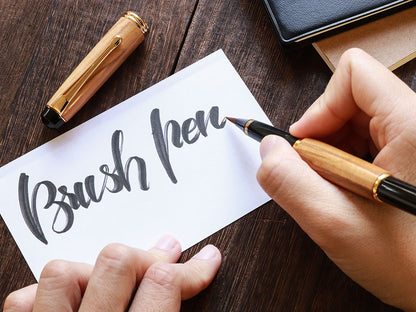 Brush Pen